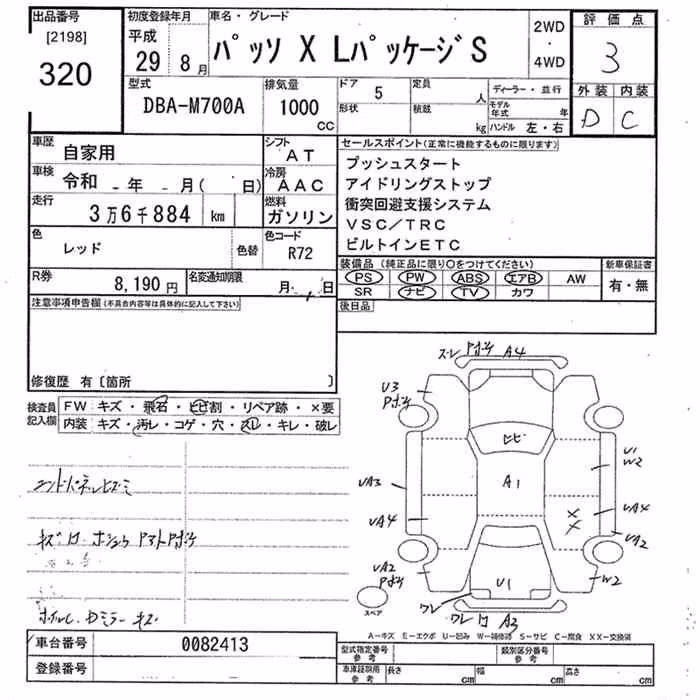 出品番号
[2198]
320
初度登録年月
平成
29年 8月
車名・グレード
パッソ X LパッケージS
2WD
・
4WD
評価点
3
外装 内装
D C
型式
DBA-M700A
排気量
1000
cc
ドア
5
形状
定員
人
積載
kg
ディーラー・並行
モデル年式 年
ハンドル 左・右
車歴
自家用
シフト
AT
車検
令和 _年 _月( 日)
冷房
AAC
走行
3万6千884 km
燃料
ガソリン
色
レッド
色替
色コード
R72
R券
8,190円
名変通知期限
月 日
セールスポイント(正常に機能するものに限ります)
プッシュスタート
アイドリングストップ
衝突回避支援システム
VSC/TRC
ビルトインETC
装備品(純正品に限り○をつけてください)
PS PW ABS エアB AW
SR ナビ TV カワ
新車保証書
有・無
後日品
注意事項申告欄(不具合内容等は具体的に記入して下さい)
修復歴 有〔箇所 〕
検査員
記入欄
FW キズ・飛石・ヒビ割・リペア跡・×要
内装 キズ・汚レ・コゲ・穴・スレ・キレ・破レ
エンドパネルヒズミ
ホイルC. Dミラーキズ
ズレ Pボケ A4
U3
Pボケ
ヒビ
A1
U1
W2
UA3
UA4
UA4
UA2
××
UA2
Pボケ
U1
W2
ワレ
ワレ A3
スペア
A-キズ E-エクボ U-凹み W-補修跡 S-サビ C-腐食 XX-交換済
車台番号
0082413
登録番号
型式指定番号
参考
類別区分番号
参考
車庫証明用
参考
長さ cm
幅 cm
高さ cm